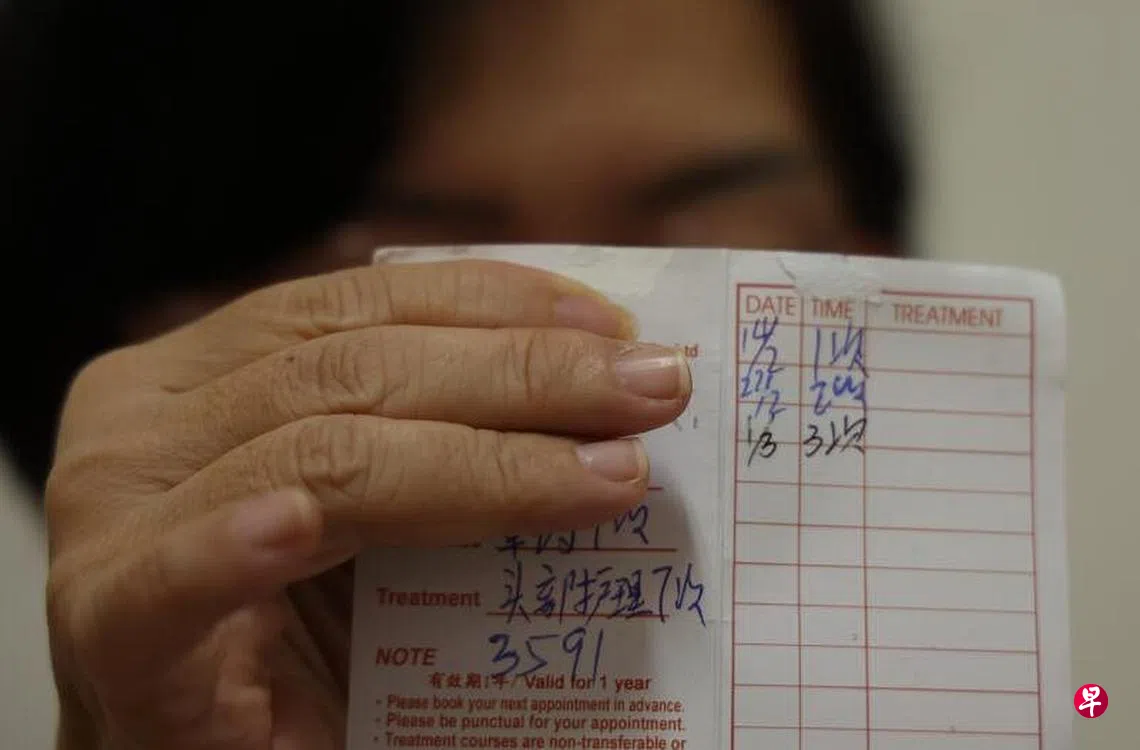 td
7次
Treatment 头部护理7次
NOTE 3591
有效期:1年/Valid for 1 year
• Please book your next appointment in advance.
• Please be punctual for your appointment.
• Treatment courses are non-transferable or
DATE TIME TREATMENT
14/2 1次
2次
1/3 3次
早